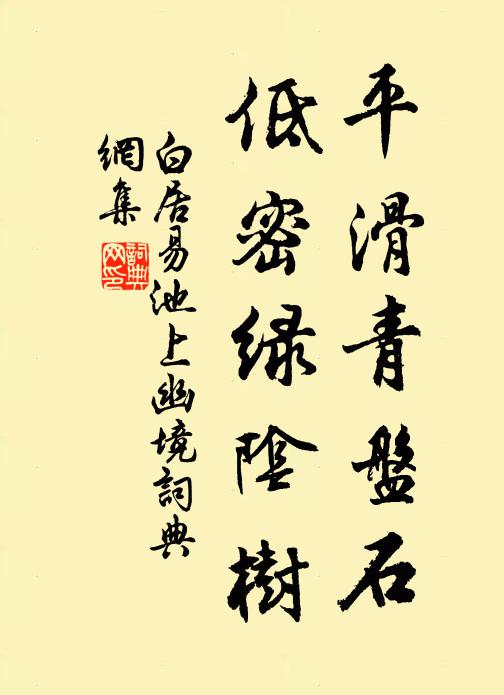 平滑青盤石
低密緑陰樹
白居易池上幽境詞典
網集
詞典
网印